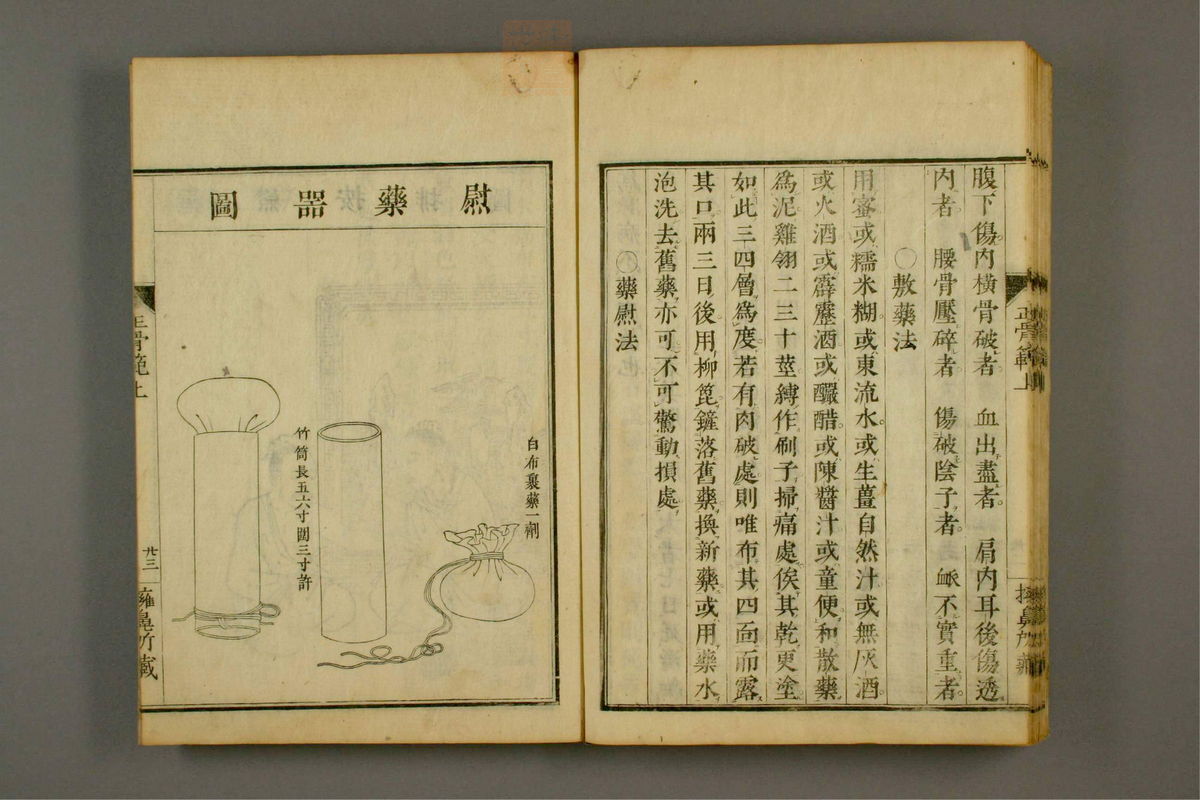 腹下傷内横骨破者　血出盡者　肩内耳後傷透
内者　腰骨壓碎者　傷破陰子者　衇不實重者
〇敷藥法
用蜜或糯米糊或東流水或生薑自然汁或無灰酒
或火酒或霹靂酒或釅醋或陳醬汁或童便和散藥
爲泥雞翎二三十莖縛作刷子掃痛處俟其乾更塗
如此三四層爲度若有肉破處則唯布其四面而露
其口兩三日後用柳篦鏟落舊藥換新藥或用藥水
泡洗去舊藥亦可不可驚動損處
〇藥熨法
正骨範上
熨藥器圖
白布裹藥一劑
竹筒長五六寸圍三寸許
正骨範上
廿三
擁鼻所藏